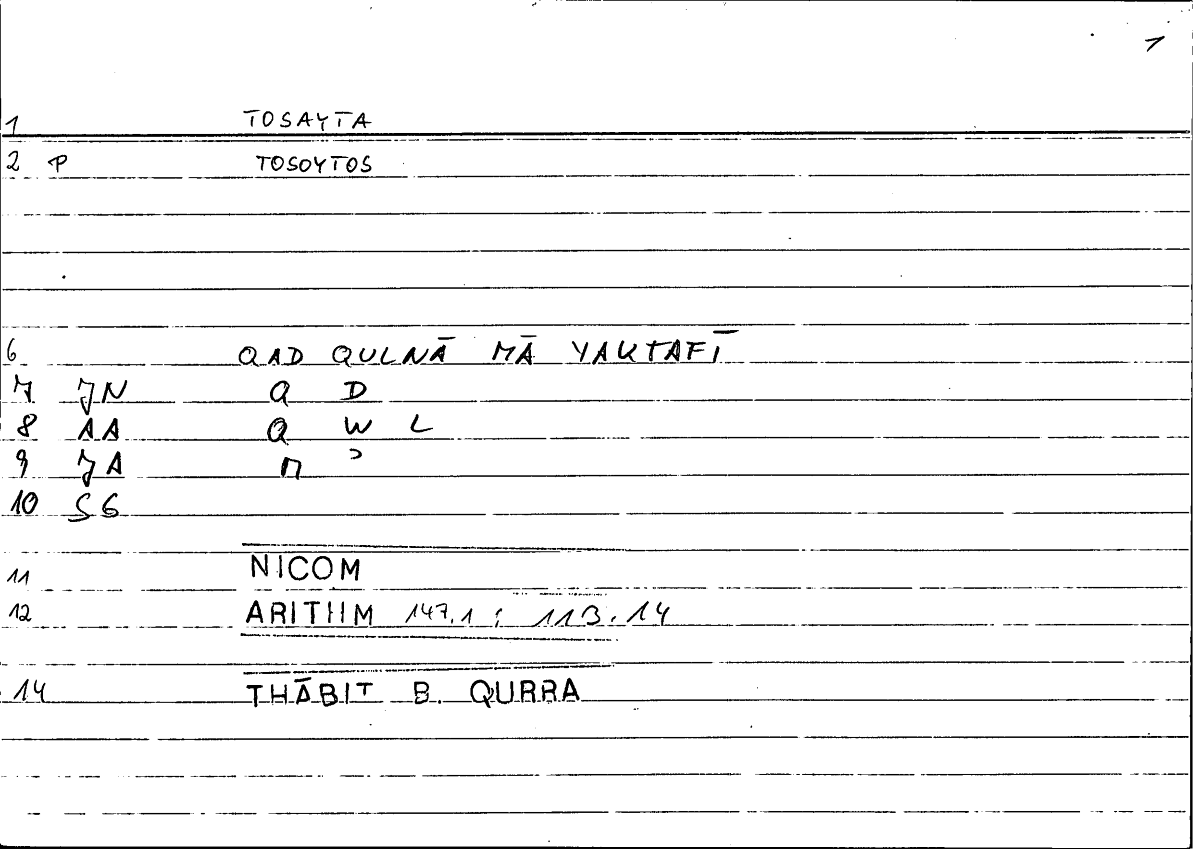 1
1 TOSAYTA
2 P TOSOYTOS
6 QAD QULNĀ MĀ YAKTAFĪ
7 JN Q D
8 AA Q W L
9 JA M ʾ
10 SG
11 NICOM
12 ARITHM 147.1 ; 113.14
14 THĀBIT B. QURRA